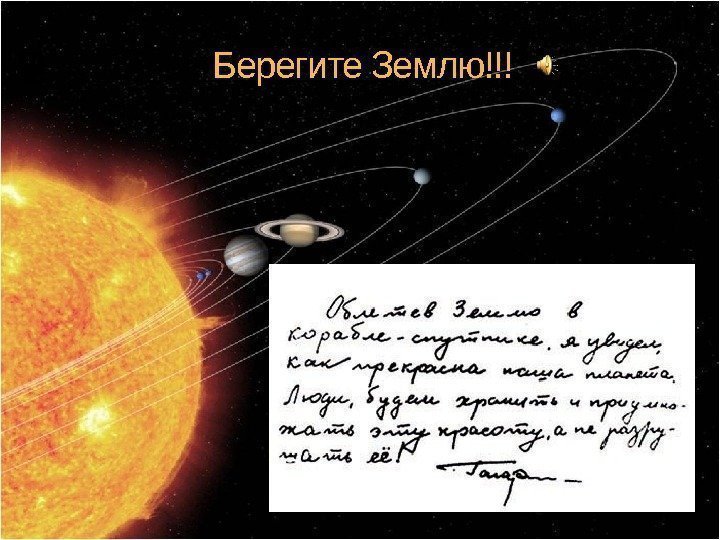 Берегите Землю!!!
Облетев Землю в
корабле-спутнике, я увидел,
как прекрасна наша планета.
Люди, будем хранить и приумно-
жать эту красоту, а не разру-
шать её!
Гагарин